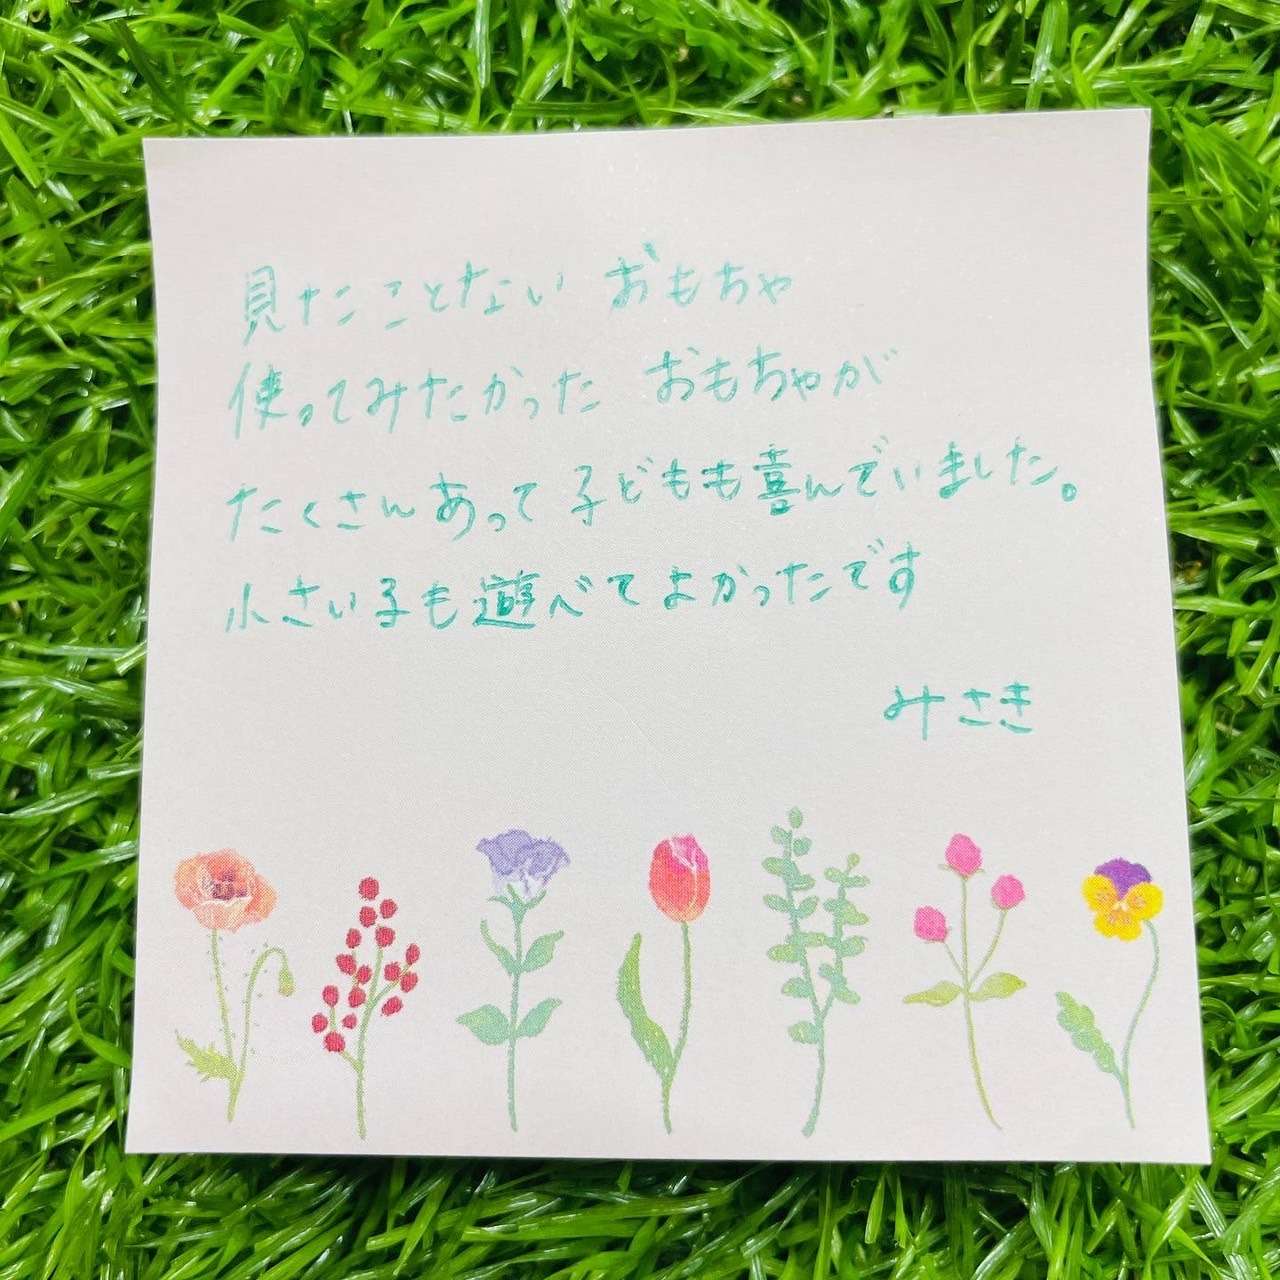 見たことない おもちゃ
使ってみたかった おもちゃが
たくさんあって 子どもも喜んでいました。
小さい子も遊べてよかったです
みさき